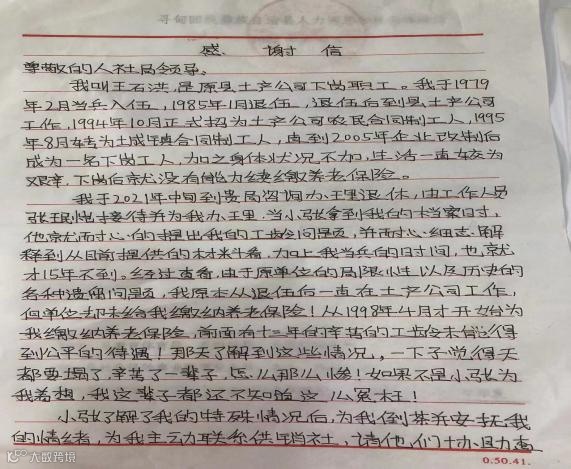 感 谢 信
尊敬的人社局领导。
我叫王石洪,是原县土产公司下岗职工。我于1979
年2月当兵入伍,1985年1月退伍,退伍后到县土产公司
工作,1994年10月正式招为土产公司农民合同制工人,1995
年8月转为城镇合同制工人,直到2005年企业改制后
成为一名下岗工人,加之身体状况不加,生活一直较为
艰辛,下岗后就没有能力继续缴养老保险。
我于2021年中旬到贵局咨询办理退休,由工作人员
张琨接待并为我办理。当小张拿到我的档案时,
他就耐心的提出我的工龄问题,并耐心细致解
释到从目前提供的材料看,加上我当兵的时间,也就
才15年不到。经过查看,由于原单位的局限性以及历史的
各种遗留问题,我原本从退伍后一直在土产公司工作,
但单位却未给我缴纳养老保险!从1998年4月才开始为
我缴纳养老保险,前面有十三年的辛苦的工龄未能得
到公平的待遇!那天了解到这些情况,一下子觉得天
都要塌了,辛苦了一辈子,怎么那么惨!如果不是小张为
我着想,我这辈子都还不知道这么冤枉!
小张了解了我的特殊情况后,为我倒茶并安抚我
的情绪,为我主动联系供销社,请他们协助查
0.50.41.
大数跨境